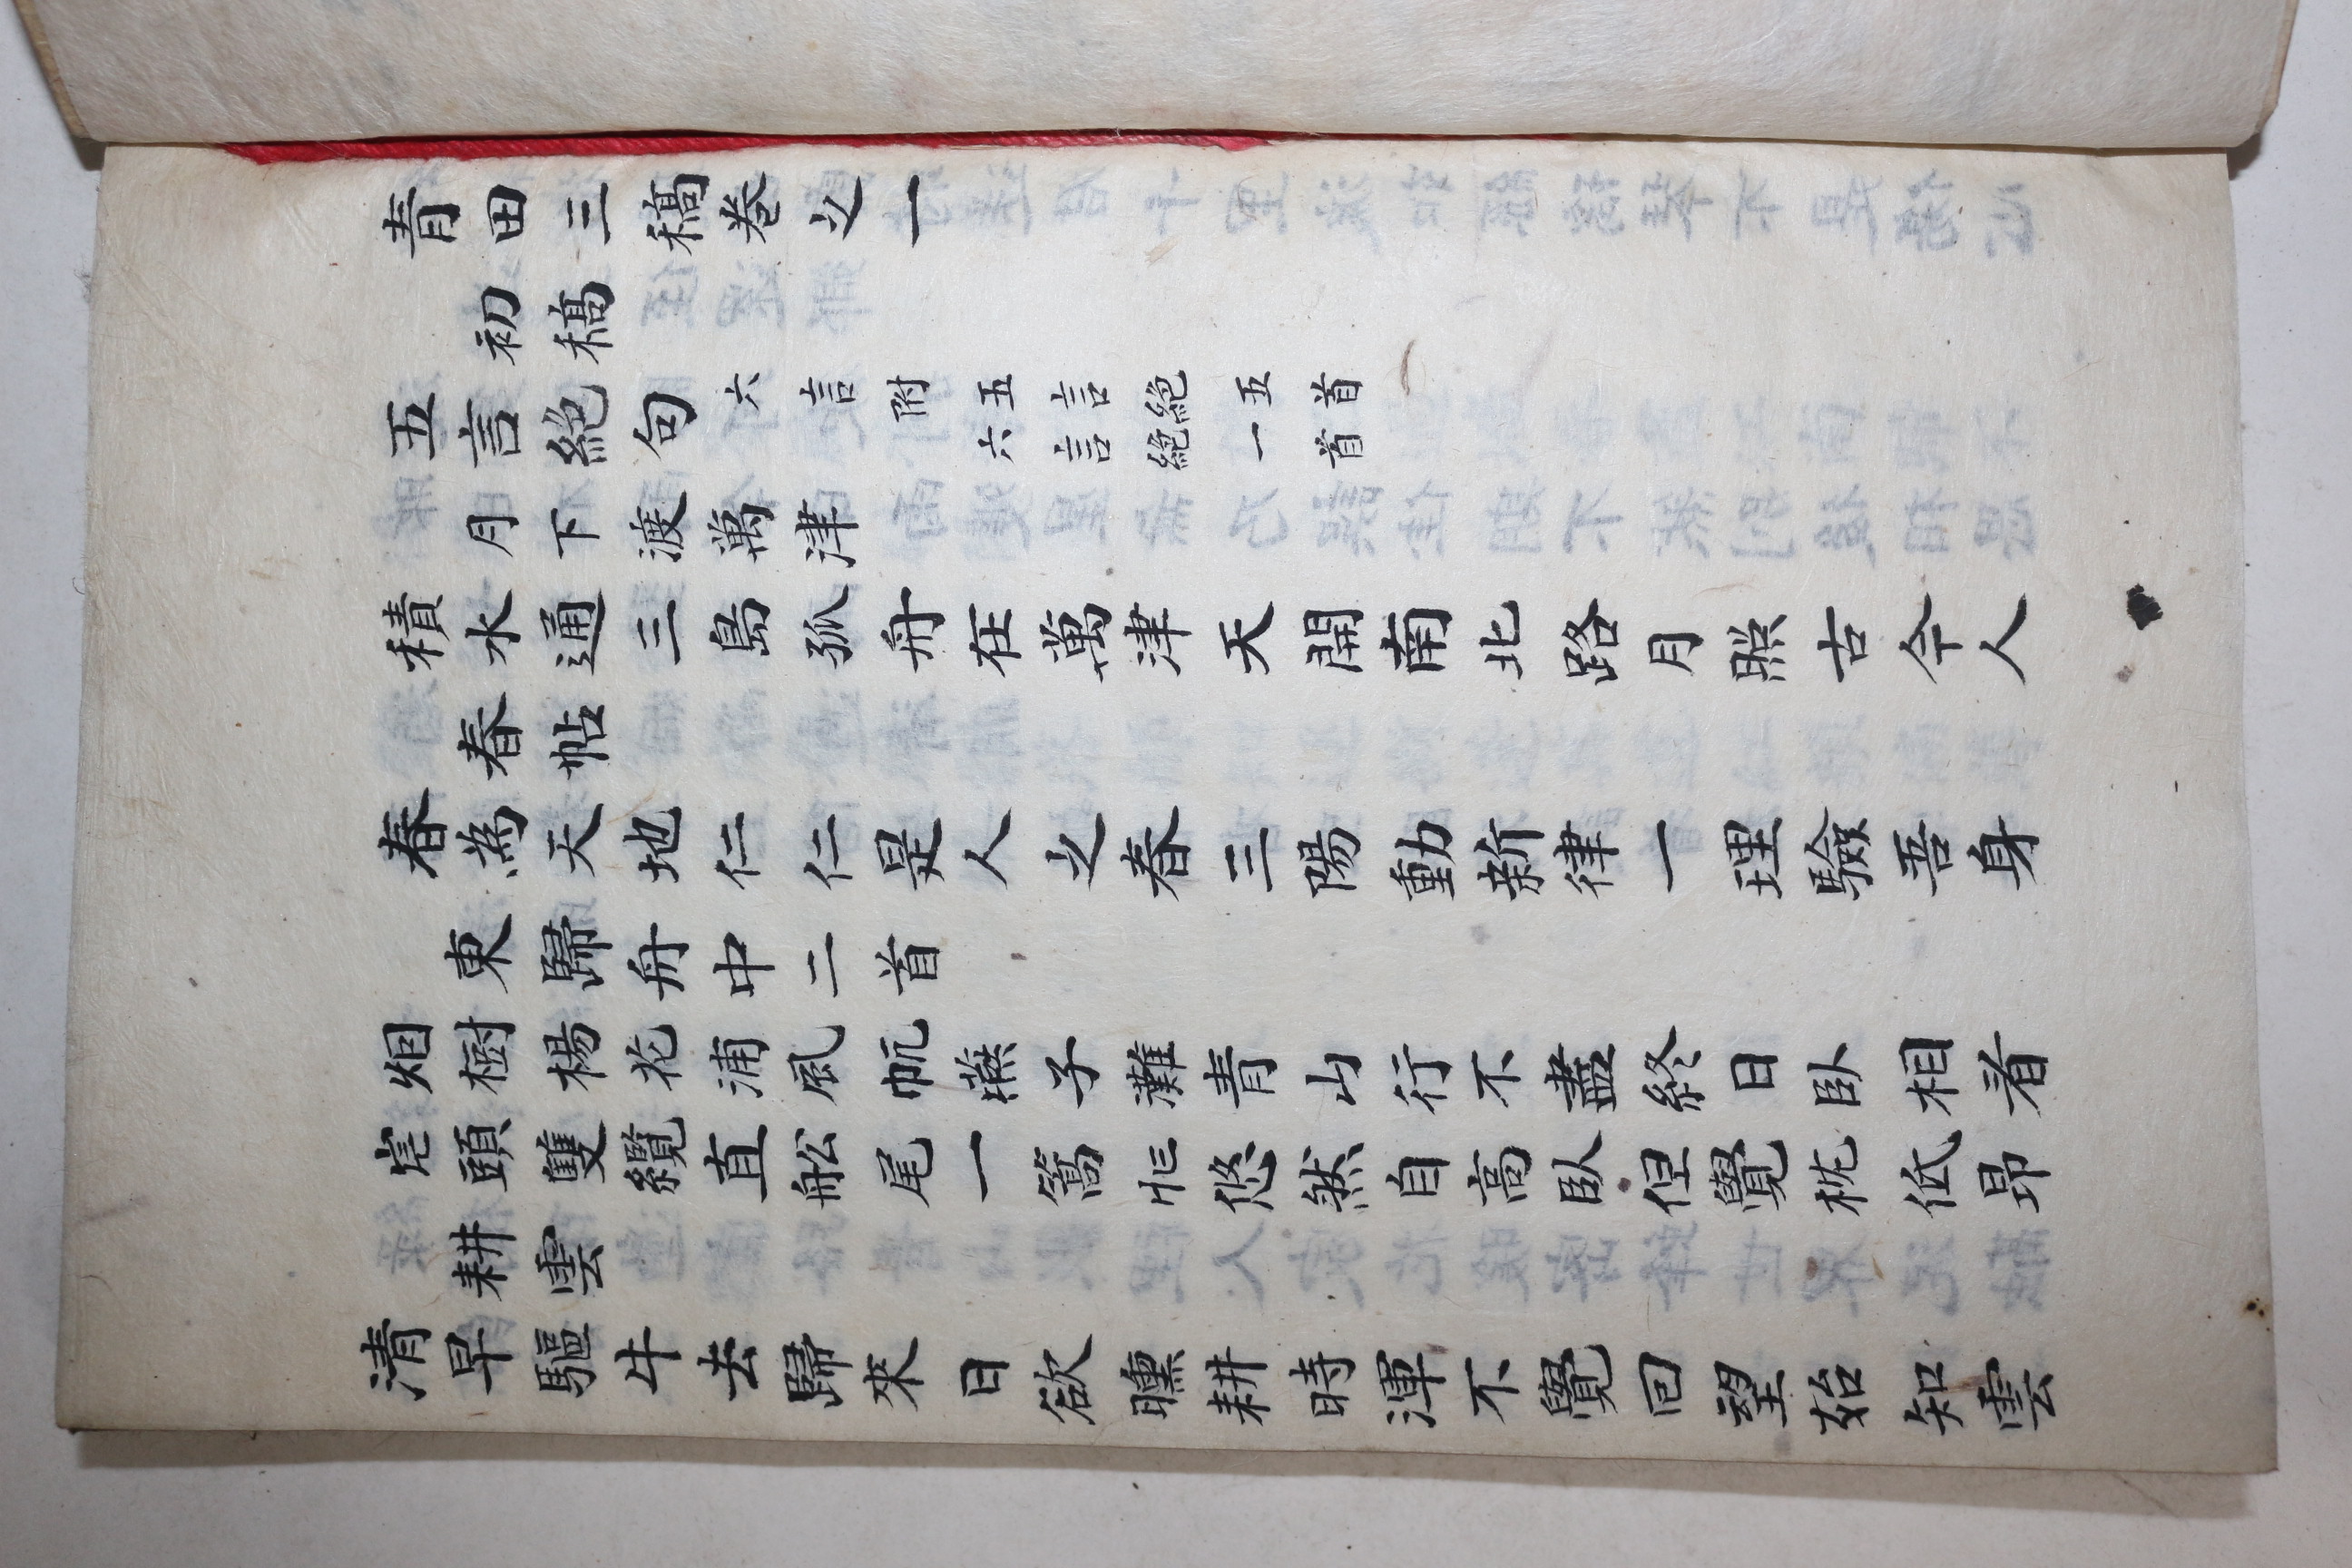 青田三稿卷之一
初稿
五言絶句 六言附 五言絶五首 六言絶一首
月下渡萬津
積水通三島孤舟在萬津天開南北路月照古今人
春春帖
春為天地仁仁是人之春三陽動新律一理驗吾身
東歸舟中二首
烟樹楊花浦風帆燕子灘青山行不盡終日臥相看
岸頭雙纜直船尾一篙忙悠然自高臥但覺枕低昻
耕雲
清早驅牛去歸來日欲曛耕時渾不覺回望始知雲